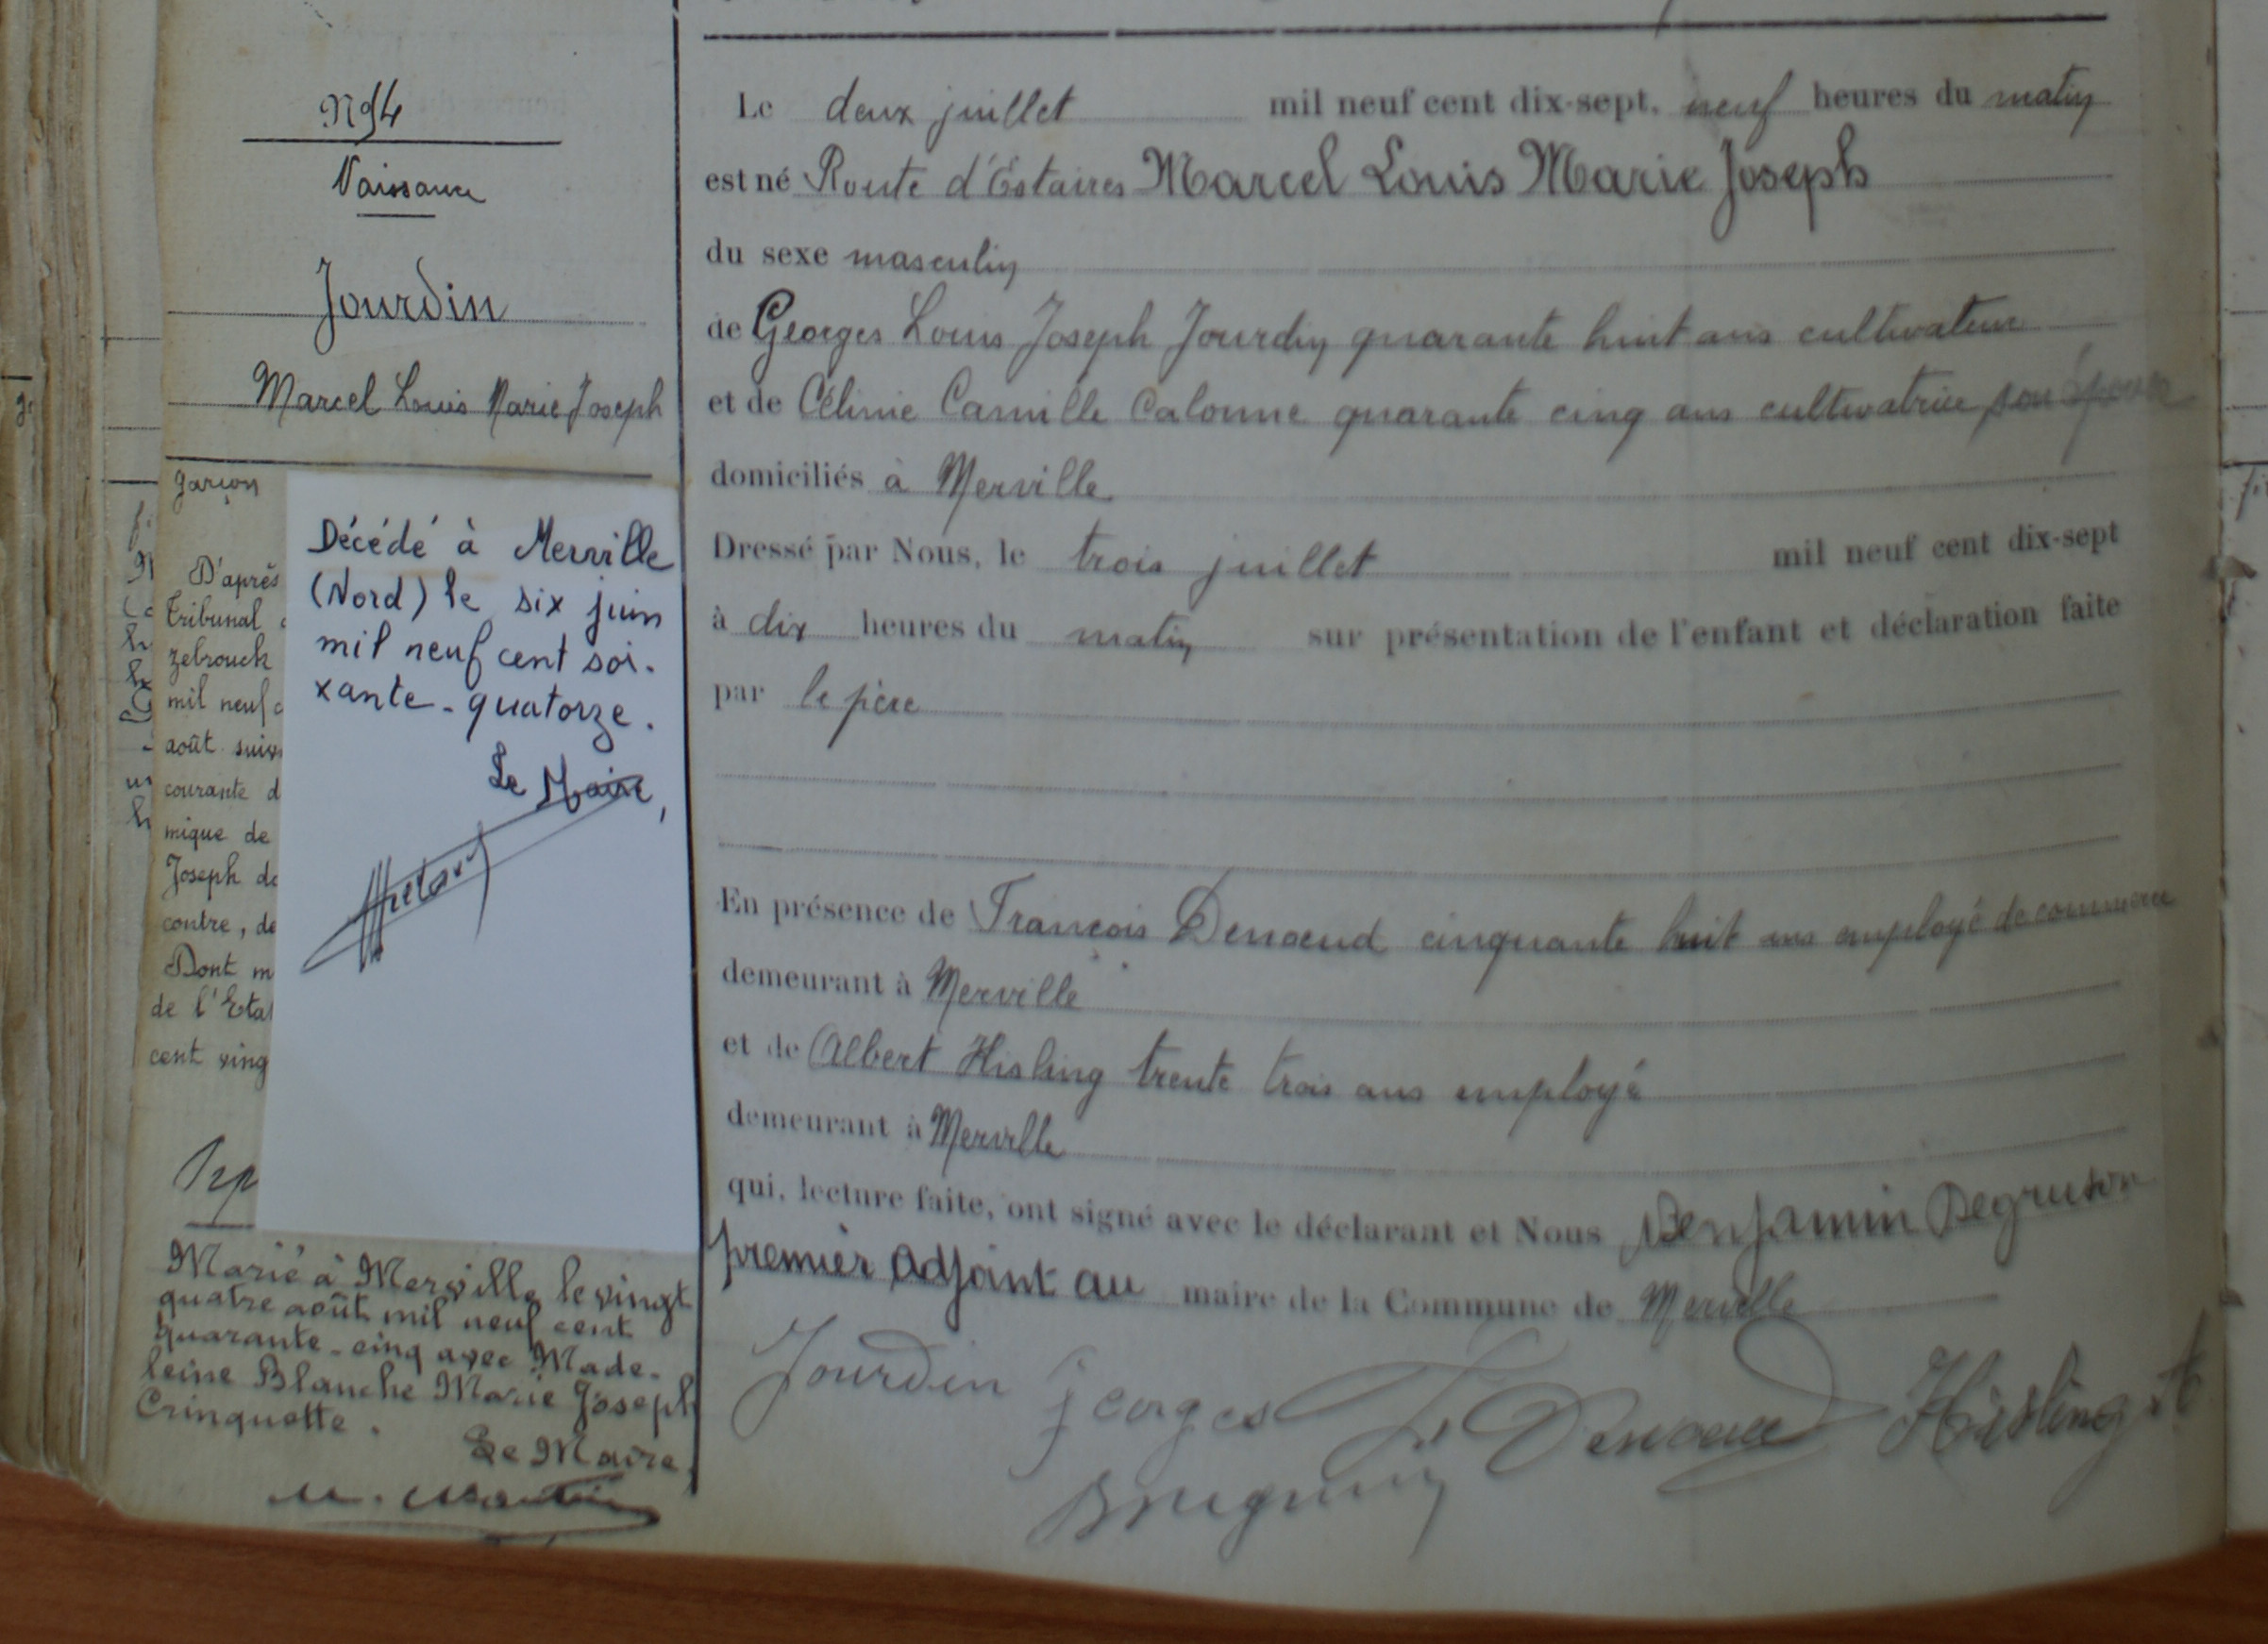 N 94
Naissance
Jourdin
Marcel Louis Marie Joseph
garçon
D'après
tribunal
zebrouck
mil neuf c
août suiv
courante d
mique de
Joseph de
contre, de
Dont m
de l'Eta
cent ving
Décédé à Merville
(Nord) le six juin
mil neuf cent soi-
xante-quatorze.
Le Maire,
Marié à Merville le vingt
quatre août mil neuf cent
quarante-cinq avec Made-
leine Blanche Marie Joseph
Crinquette.
Le Maire,
Le deux juillet mil neuf cent dix-sept, neuf heures du matin
est né Route d'Estaires Marcel Louis Marie Joseph
du sexe masculin
de Georges Louis Joseph Jourdin quarante huit ans cultivateur
et de Célinie Camille Calonne quarante cinq ans cultivatrice son épouse
domiciliés à Merville
Dressé par Nous, le trois juillet mil neuf cent dix-sept
à dix heures du matin sur présentation de l'enfant et déclaration faite
par le père
En présence de François Denoeud cinquante huit ans employé de commerce
demeurant à Merville
et de Albert Hisling trente trois ans employé
demeurant à Merville
qui, lecture faite, ont signé avec le déclarant et Nous Benjamin Degruson
premier adjoint au maire de la Commune de Merville
Jourdin Georges F Denoeud Hisling A